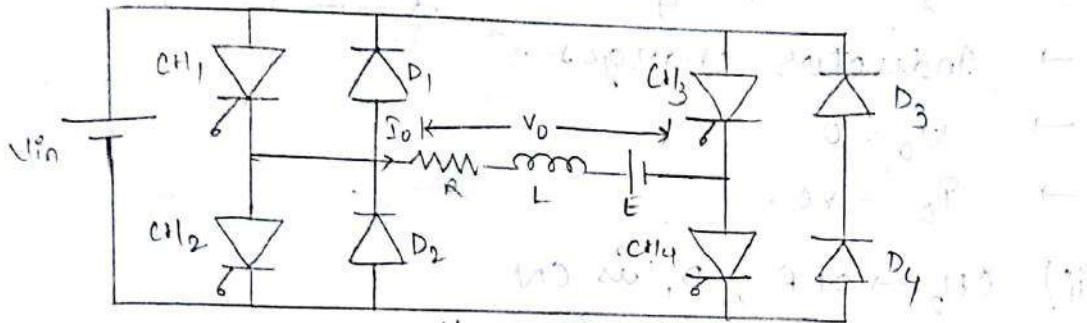 CH1 D1 CH3 D3
I0 V0
Vin
R L E
CH2 D2 CH4 D4